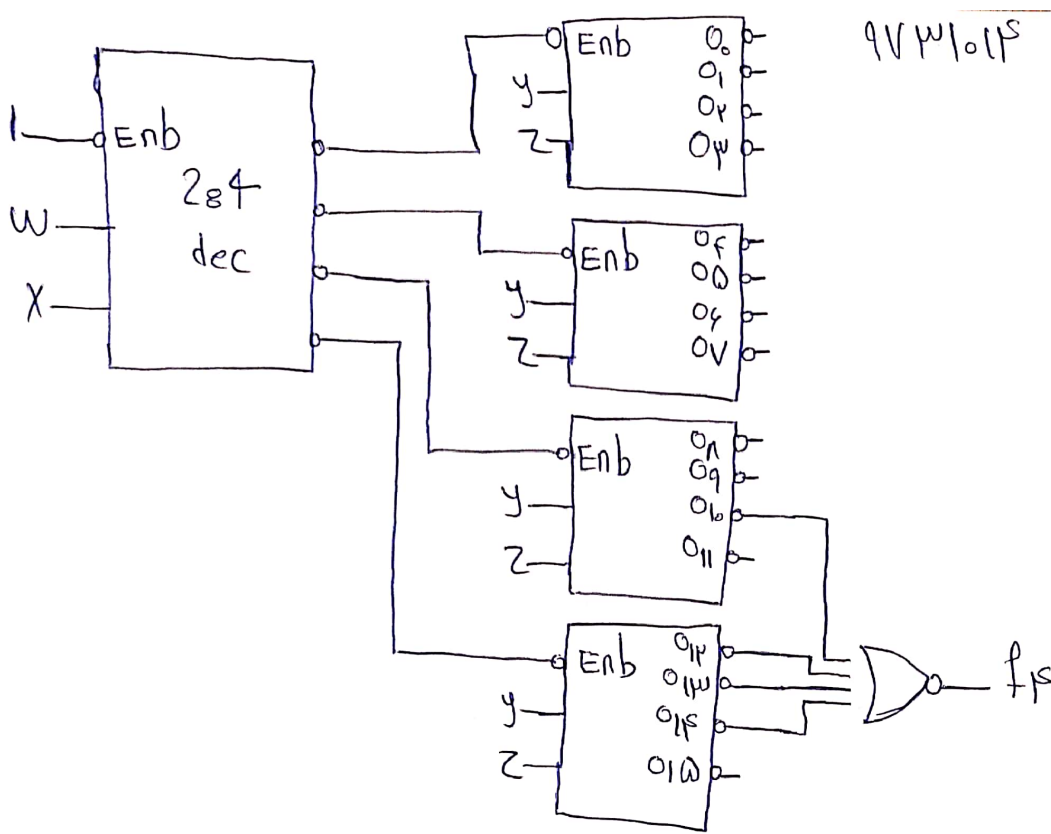 ۹۷۳۱۰۱۴
1 Enb
W
X
2:4
dec
Enb
y
Z
O۰
O۱
O۲
O۳
Enb
y
Z
O۴
O۵
O۶
O۷
Enb
y
Z
O۸
O۹
O۱۰
O۱۱
Enb
y
Z
O۱۲
O۱۳
O۱۴
O۱۵
f۱۴